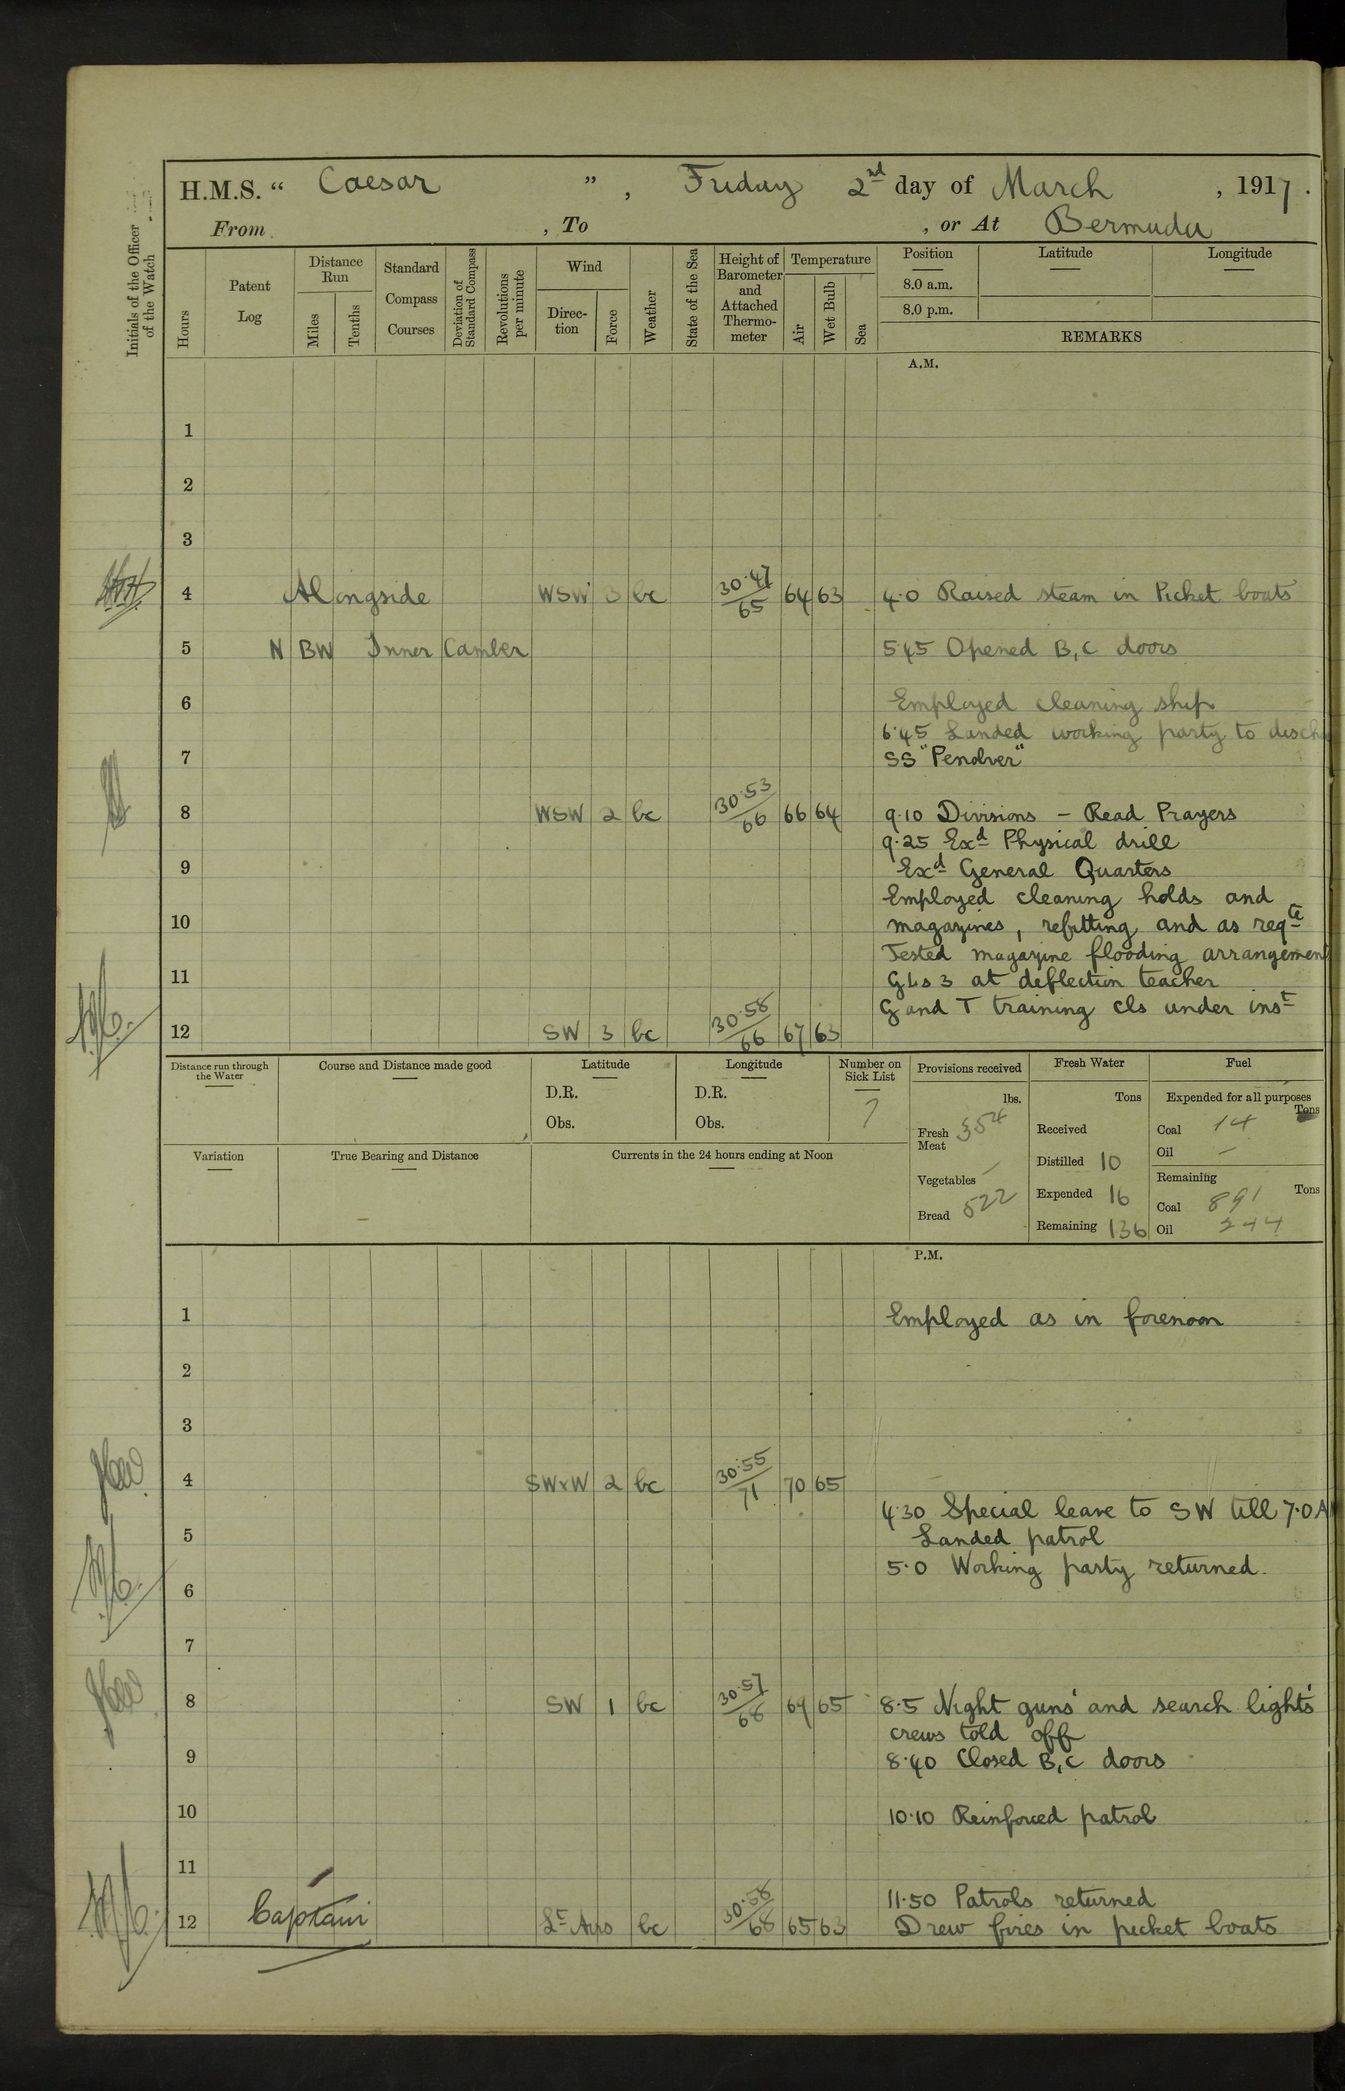 H.M.S. “ Caesar ” , Friday 2nd day of March , 1917 .
From , To , or At Bermuda
Initials of the Officer of the Watch
Hours
Patent Log
Distance Run
Miles
Tenths
Standard Compass Courses
Deviation of Standard Compass
Revolutions per minute
Wind
Direc-tion
Force
Weather
State of the Sea
Height of Barometer and Attached Thermo-meter
Temperature
Air
Wet Bulb
Sea
Position Latitude Longitude
8.0 a.m.
8.0 p.m.
REMARKS
A.M.
1
2
3
4 Alongside WSW 3 bc 30·47/65 64 63 4·0 Raised steam in Picket boats
5 N BW Inner Camber 5·45 Opened B, C doors
6 Employed cleaning ship
6·45 Landed working party to
7 SS "Penolver"
8 WSW 2 bc 30·53/66 66 64 9·10 Divisions – Read Prayers
9·25 Exd Physical drill
9 Exd General Quarters
Employed cleaning holds and
10 magazines, refitting and as reqte
Tested magazine flooding arrangemen
11 GLs 3 at deflection teacher
G and T training cls under inst
12 SW 3 bc 30·58/66 67 63
Distance run through the Water
Course and Distance made good
Latitude
D.R.
Obs.
Longitude
D.R.
Obs.
Number on Sick List
7
Provisions received
lbs.
Fresh Meat 354
Vegetables –
Bread 522
Fresh Water
Tons
Received
Distilled 10
Expended 16
Remaining 136
Fuel
Expended for all purposes
Tons
Coal 14
Oil –
Remaining
Tons
Coal 891
Oil 244
Variation
True Bearing and Distance
Currents in the 24 hours ending at Noon
P.M.
1 Employed as in forenoon
2
3
4 SWxW 2 bc 30·55/71 70 65
4·30 Special leave to SW till 7·0 A
5 Landed patrol
5·0 Working party returned.
6
7
8 SW 1 bc 30·57/68 69 65 8·5 Night guns' and search lights'
crews told off
9 8·40 Closed B, C doors
10 10·10 Reinforced patrol
11
11·50 Patrols returned
12 Captain Lt Airs bc 30·58/68 65 63 Drew fires in picket boats